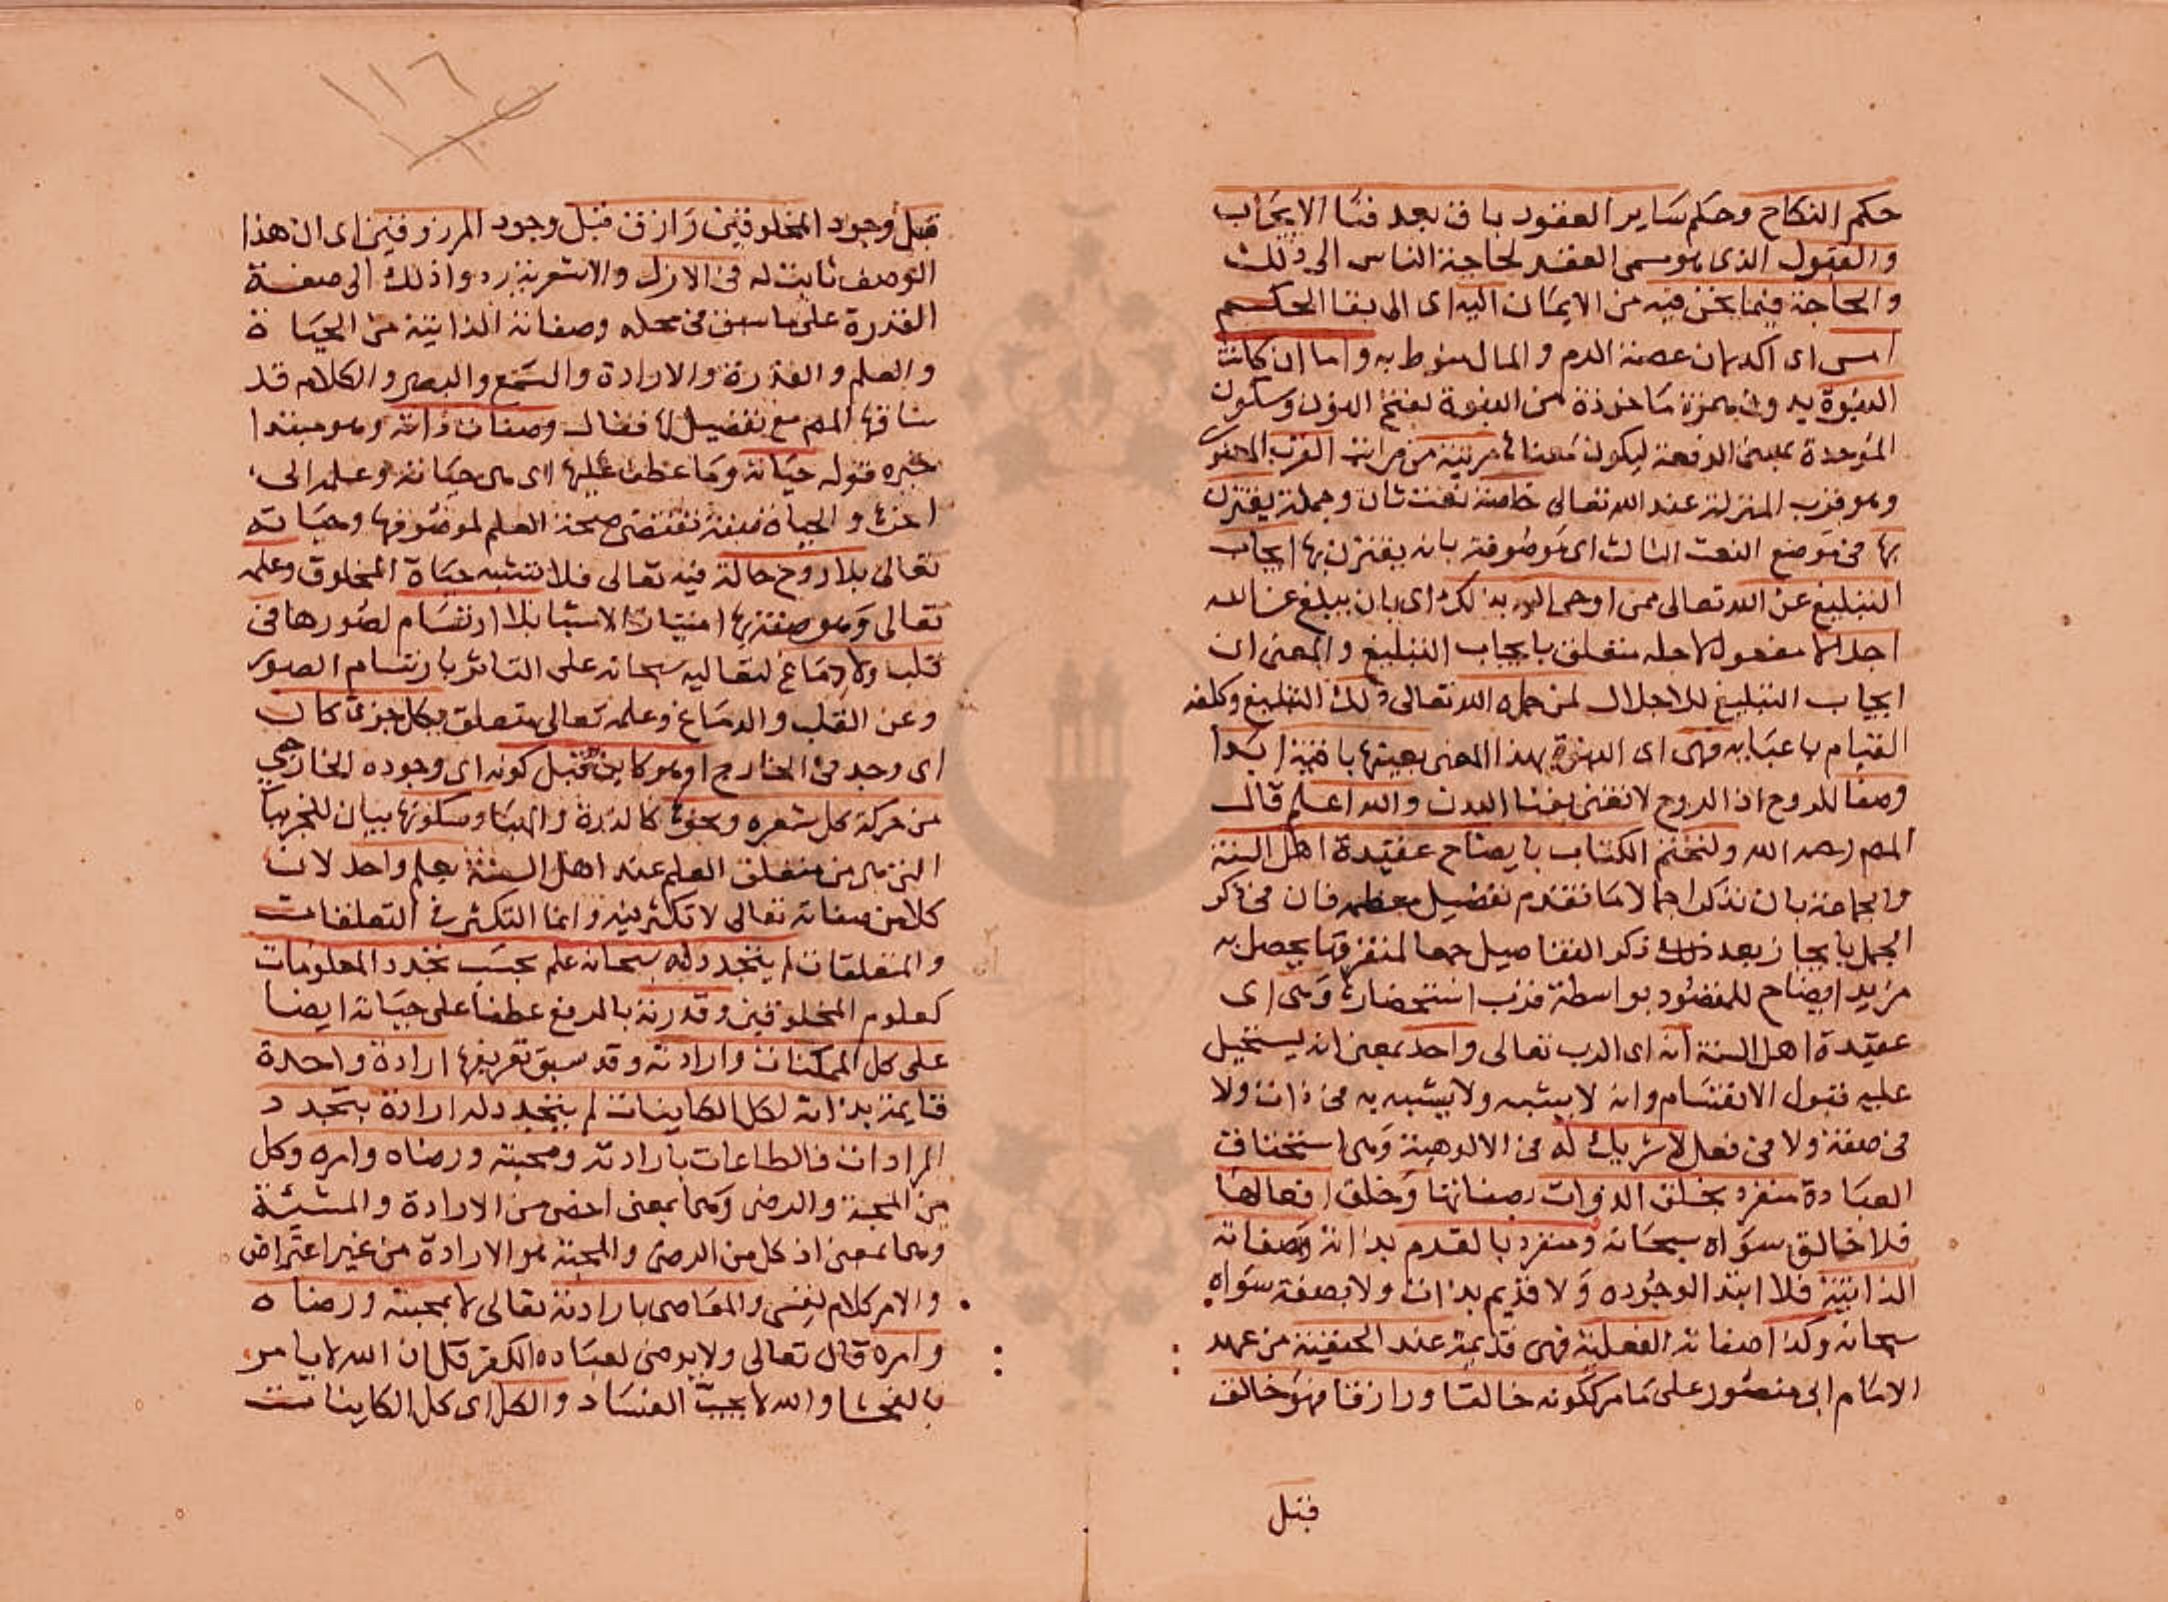 حكم النكاح وحكم ساير العقود باق بعد فنا الايجاب
والقبول الذى هو مسمى العقد لحاجة الناس الى ذلك
والحاجة فيما نحن فيه من الايمان اليه اى الى بقا الحكم
امس اى اكد لان عصمة الدم والمال منوط به واما ان كانت
النبوة بدون همزة ماخوذة من النبوة بفتح النون وسكون
الموحدة بمعنى الرفعة ليكون معناها مرتبة من مراتب القرب المعنوى
وهو قرب المنزلة عند الله تعالى خاصة نعت ثان وجملة يقترن
بها فى موضع النعت الثالث اى موصوفة بانه يقترن بها ايجاب
التبليغ عن الله تعالى ممن اوحى اليه بذلك اى بان يبلغ عن الله
اجلالا مفعول لاجله متعلق بايجاب التبليغ والمعنى ان
ايجاب التبليغ للاجلال لمن حمله الله تعالى ذلك التبليغ وكلفه
القيام باعبايه فهى اى النبوة بهذا المعنى بعينها باقية ابدا
وصفا للروح اذ الروح لا تفنى بفنا البدن والله اعلم قال
المص رحمه الله ولنختم الكتاب بايضاح عقيدة اهل السنة
والجماعة بان نذكر اجمالا ما تقدم تفصيل معظمه فان فى ذكر
الجمل بايجاز بعد ذكر التفاصيل جمعا لمتفرقها يحصل به
مزيد ايضاح للمقصود بواسطة قرب استحضارها وهى اى
عقيدة اهل السنة انه اى الرب تعالى واحد بمعنى انه يستحيل
عليه قبول الانقسام وانه لا يشبه ولا يشبه به فى ذات ولا
فى صفة ولا فى فعل لا شريك له فى الالوهية وهى استحقاق
العبادة منفرد بخلق الذوات بصفاتها وخلق افعالها
فلا خالق سواه سبحانه ومنفرد بالقدم بذاته وصفاته
الذاتية فلا ابتدا لوجوده ولا قديم بذات ولا بصفة سواه
سبحانه وكذا صفاته الفعلية فهى قديمة عند الحنفية من عهد
الامام ابى منصور على ما مر ككونه خالقا ورازقا فهو خالق
قبل
١١٦
قبل وجود المخلوقين ورازق قبل وجود المرزوقين اى ان هذا
الوصف ثابت له فى الازل والاشعرية ردوا ذلك الى صفة
القدرة على ما سبق فى محله وصفاته الذاتية من الحياة
والعلم والقدرة والارادة والسمع والبصر والكلام قد
ساقها المص مع تفصيل لها فقال وصفات ذاته وهو مبتدا
خبره قوله حياته وما عطف عليها اى هى حياته وعلمه الى
اخره والحياة صفة تقتضى صحة العلم لموصوفها وحياته
تعالى بلا روح حالة فيه تعالى فلا تشبه حياة المخلوق وعلمه
تعالى وهو صفة بها امتياز الاشيا بلا ارتسام لصورها فى
قلب ولا دماغ لتعاليه سبحانه على التاثر بارتسام الصور
وعن القلب والدماغ وعلمه تعالى متعلق بكل جزئى كان
اى وجد فى الخارج او هو كاين قبل كونه اى وجوده الخارجى
من حركة كل شعره ونحوها كالذرة والهبا وسكونها بيان للجزئيات
التى هى من متعلق العلم عند اهل السنة بعلم واحد لان
كلا من صفاته تعالى لا تكثر فيه وانما التكثر فى التعلقات
والمتعلقات لم يتجدد له سبحانه علم بحسب تجدد المعلومات
كعلوم المخلوقين وقدرته بالرفع عطفا على حياته ايضا
على كل الممكنات وارادته وقد سبق تعريفها ارادة واحدة
قايمة بذاته لكل الكاينات لم يتجدد له ارادة بتجدد
المرادات فالطاعات بارادته ومحبته ورضاه وامره وكل
من المحبة والرضى وهما بمعنى اخص من الارادة والمشيئة
وهما بمعنى اذ كل من الرضى والمحبة هو الارادة من غير اعتراض
والامر كلام نفسى والمعاصى بارادته تعالى لا بمحبته ورضاه
وامره قال تعالى ولا يرضى لعباده الكفر قل ان الله لا يامر
بالفحشا والله لا يحب الفساد والكل اى كل الكاينات